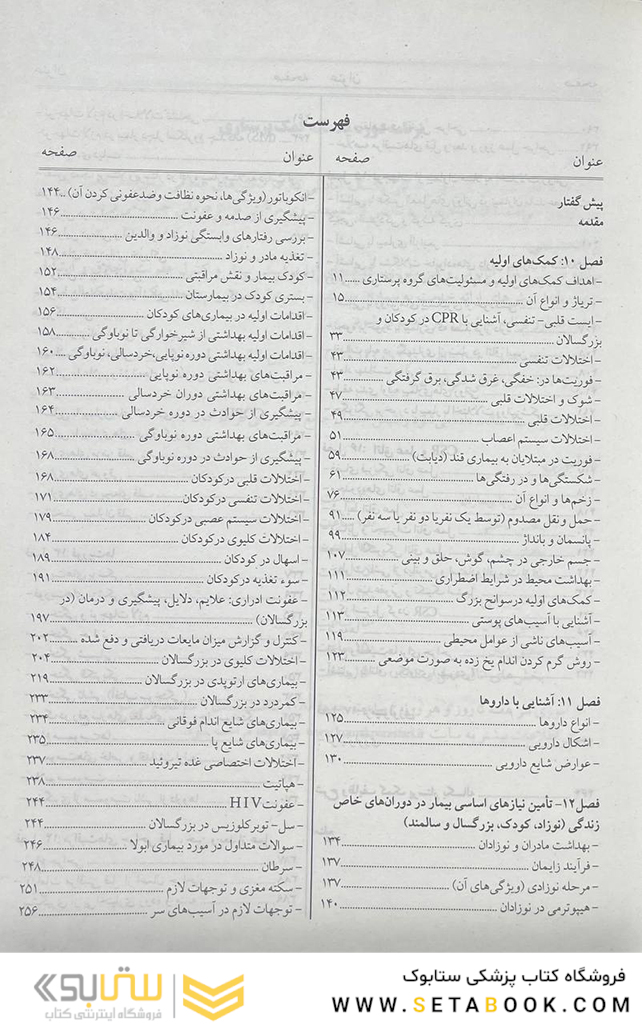 فهرست
عنوان صفحه
پیش گفتار
مقدمه
فصل ۱۰: کمک‌های اولیه
- اهداف کمک‌های اولیه و مسئولیت‌های گروه پرستاری ..... ۱۱
- تریاژ و انواع آن ..... ۱۵
- ایست قلبی- تنفسی، آشنایی با CPR در کودکان و
بزرگسالان ..... ۳۳
- اختلالات تنفسی ..... ۴۳
- فوریت‌ها در: خفگی، غرق شدگی، برق گرفتگی ..... ۴۳
- شوک و اختلالات قلبی ..... ۴۷
- اختلالات قلبی ..... ۴۹
- اختلالات سیستم اعصاب ..... ۵۱
- فوریت در مبتلایان به بیماری قند (دیابت) ..... ۵۹
- شکستگی‌ها و در رفتگی‌ها ..... ۶۱
- زخم‌ها و انواع آن ..... ۷۶
- حمل و نقل مصدوم (توسط یک نفر یا دو نفر یا سه نفر) ..... ۹۱
- پانسمان و بانداژ ..... ۹۹
- جسم خارجی در چشم، گوش، حلق و بینی ..... ۱۰۷
- بهداشت محیط در شرایط اضطراری ..... ۱۱۱
- کمک‌های اولیه در سوانح بزرگ ..... ۱۱۲
- آشنایی با آسیب‌های پوستی ..... ۱۱۳
- آسیب‌های ناشی از عوامل محیطی ..... ۱۱۹
- روش گرم کردن اندام یخ زده به صورت موضعی ..... ۱۲۳
فصل ۱۱: آشنایی با داروها
- انواع داروها ..... ۱۲۵
- اشکال دارویی ..... ۱۲۷
- عوارض شایع دارویی ..... ۱۳۰
فصل ۱۲- تأمین نیازهای اساسی بیمار در دوران‌های خاص
زندگی (نوزاد، کودک، بزرگسال و سالمند)
- بهداشت مادران و نوزادان ..... ۱۳۴
- فرآیند زایمان ..... ۱۳۷
- مرحله نوزادی (ویژگی‌های آن) ..... ۱۳۷
- هیپوترمی در نوزادان ..... ۱۴۰
عنوان صفحه
- انکوباتور (ویژگی‌ها، نحوه نظافت و ضدعفونی کردن آن) .. ۱۴۴
- پیشگیری از صدمه و عفونت ..... ۱۴۶
- بررسی رفتارهای وابستگی نوزاد و والدین ..... ۱۴۶
- تغذیه مادر و نوزاد ..... ۱۴۸
- کودک بیمار و نقش مراقبتی ..... ۱۵۲
- بستری کودک در بیمارستان ..... ۱۵۴
- اقدامات اولیه در بیماری‌های کودکان ..... ۱۵۶
- اقدامات اولیه بهداشتی از شیرخوارگی تا نوباوگی ..... ۱۵۸
- اقدامات اولیه بهداشتی دوره نوپایی، خردسالی، نوباوگی ..... ۱۶۰
- مراقبت‌های بهداشتی دوره نوپایی ..... ۱۶۲
- مراقبت‌های بهداشتی دوران خردسالی ..... ۱۶۳
- پیشگیری از حوادث در دوره خردسالی ..... ۱۶۴
- مراقبت‌های بهداشتی دوره نوباوگی ..... ۱۶۵
- پیشگیری از حوادث در دوره نوباوگی ..... ۱۶۸
- اختلالات قلبی در کودکان ..... ۱۶۸
- اختلالات تنفسی در کودکان ..... ۱۷۱
- اختلالات سیستم عصبی در کودکان ..... ۱۷۹
- اختلالات کلیوی در کودکان ..... ۱۸۴
- اسهال در کودکان ..... ۱۸۹
- سوء تغذیه در کودکان ..... ۱۹۱
- عفونت ادراری: علایم، دلایل، پیشگیری و درمان (در
بزرگسالان) ..... ۱۹۷
- کنترل و گزارش میزان مایعات دریافتی و دفع شده ..... ۲۰۲
- اختلالات کلیوی در بزرگسالان ..... ۲۰۴
- بیماری‌های ارتوپدی در بزرگسالان ..... ۲۱۹
- کمردرد در بزرگسالان ..... ۲۳۳
- بیماری‌های شایع اندام فوقانی ..... ۲۳۴
- بیماری‌های شایع پا ..... ۲۳۵
- اختلالات اختصاصی غده تیروئید ..... ۲۳۷
- هپاتیت ..... ۲۳۸
- عفونت HIV ..... ۲۴۴
- سل- توبرکلوزیس در بزرگسالان ..... ۲۴۴
- سوالات متداول در مورد بیماری ابولا ..... ۲۴۶
- سرطان ..... ۲۴۸
- سکته مغزی و توجهات لازم ..... ۲۵۱
- توجهات لازم در آسیب‌های سر ..... ۲۵۶
فروشگاه کتاب پزشکی ستابوک
WWW.SETABOOK.COM
ستابوک
فروشگاه اینترنتی کتاب